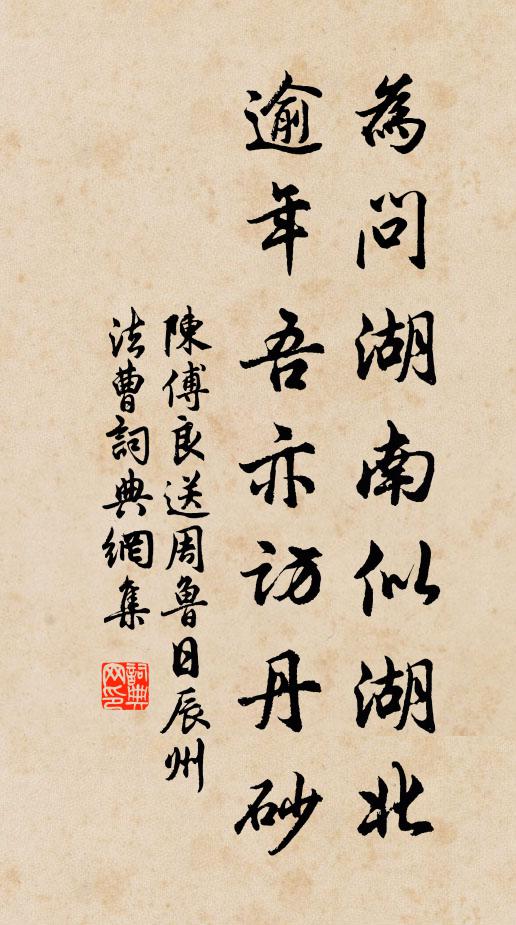 為問湖南似湖北
逾年吾亦訪丹砂
陳傅良送周魯日辰州
法曹詞典網集
詞典網印